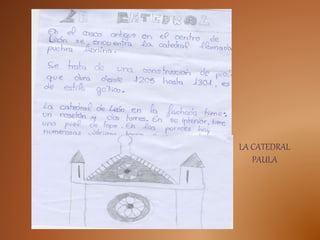 LA CATEDRAL
En el casco antiguo en el centro de
León se encuentra la catedral llamada
pulchra leonina.
Se trata de una construcción de
que dura desde 1205 hasta 1301, es
de estilo gótico.
La catedral de León en la fachada tiene
un rosetón y dos torres. En su interior, tiene
una de En las paredes hay
numerosas vidrieras
LA CATEDRAL
PAULA